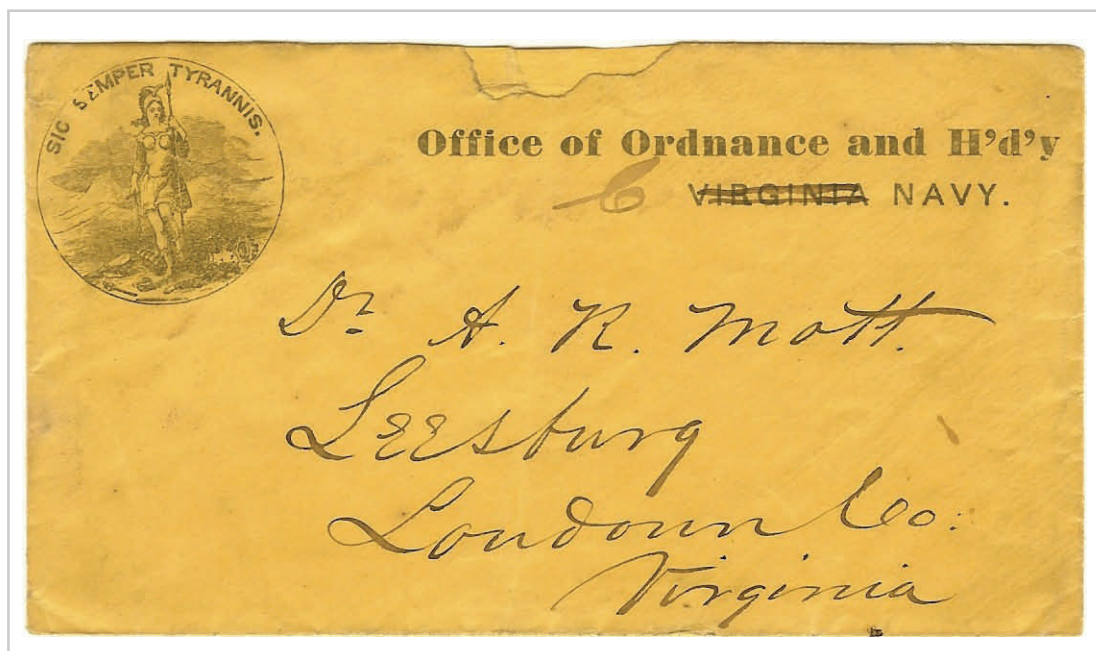 SIC SEMPER TYRANNIS.
Office of Ordnance and H'd'y
C VIRGINIA NAVY.
Dr A. R. Mott.
Leesburg
Loudoun Co.
Virginia